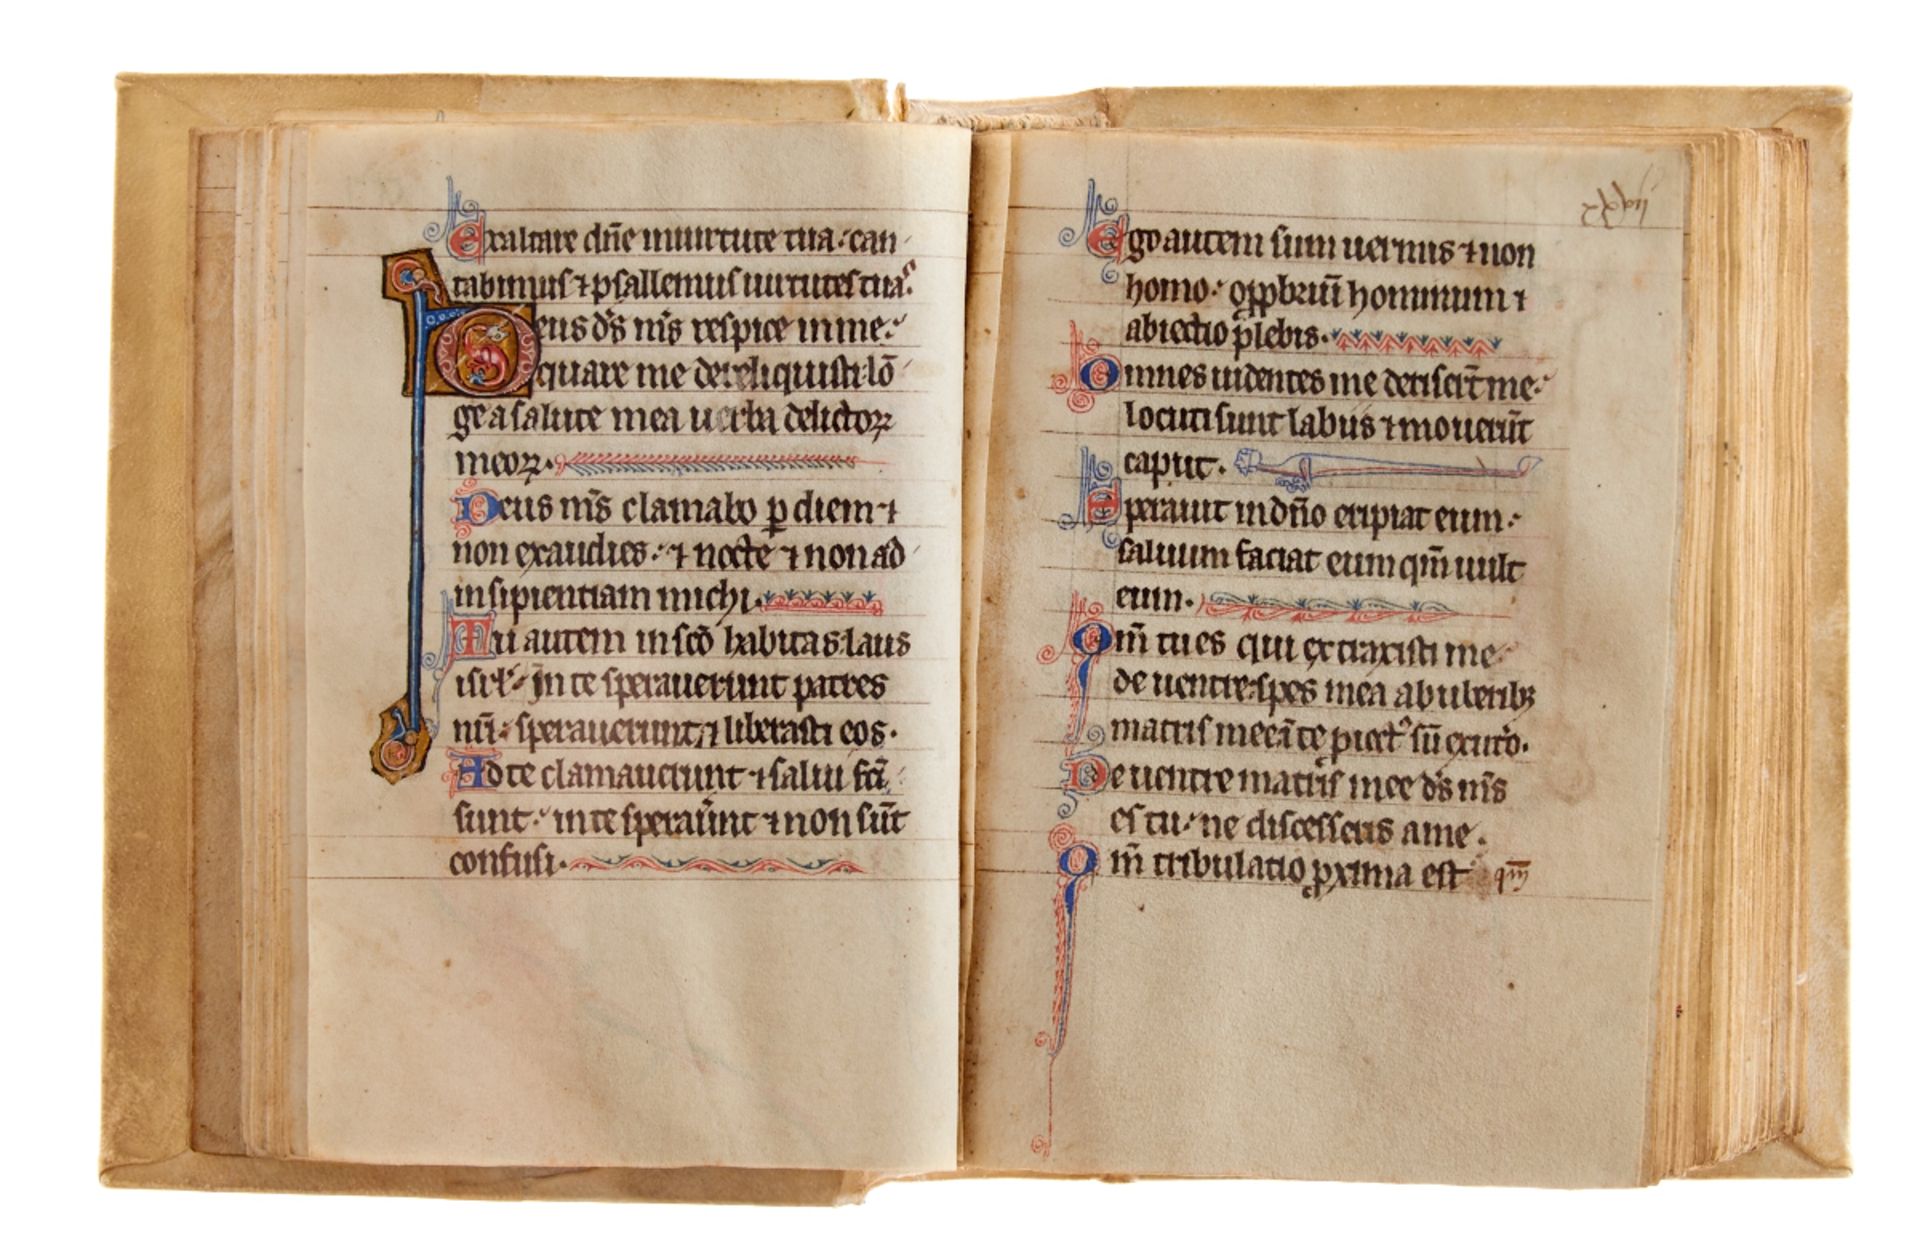 Exaltare dñe in uirtute tua· can
tabimus ⁊ psallemus uirtutes tuas·
Deus ds̄ ms̄ respice in me·
quare me dereliquisti· lō
ge a salute mea uerba delictoꝝ
meoꝝ·
Deus ms̄ clamabo ꝑ diem ⁊
non exaudies· ⁊ nocte ⁊ non ad
insipientiam michi·
Tu autem in scō habitas· laus
isrl̄· In te sperauerunt patres
nr̄i· sperauerunt ⁊ liberasti eos·
Ad te clamauerunt ⁊ salui fc̄i
sunt· in te sperauṝnt ⁊ non sūt
confusi·
xxvij
Ego autem sum uermis ⁊ non
homo· opp̄briū hominum ⁊
abiectio plebis·
Omnes uidentes me deriserūt me·
locuti sunt labiis ⁊ mouerūt
caput·
Sperauit in dño eripiat eum·
saluum faciat eum qm̄ uult
eum·
Qm̄ tu es qui extraxisti me
de uentre· spes mea ab uberibꝫ
matris mee ī te ꝓiectꝰ sū ex utō·
De uentre matris mee ds̄ ms̄
es tu· ne discesseris a me·
Qm̄ tribulatio ꝓxima est qm̄